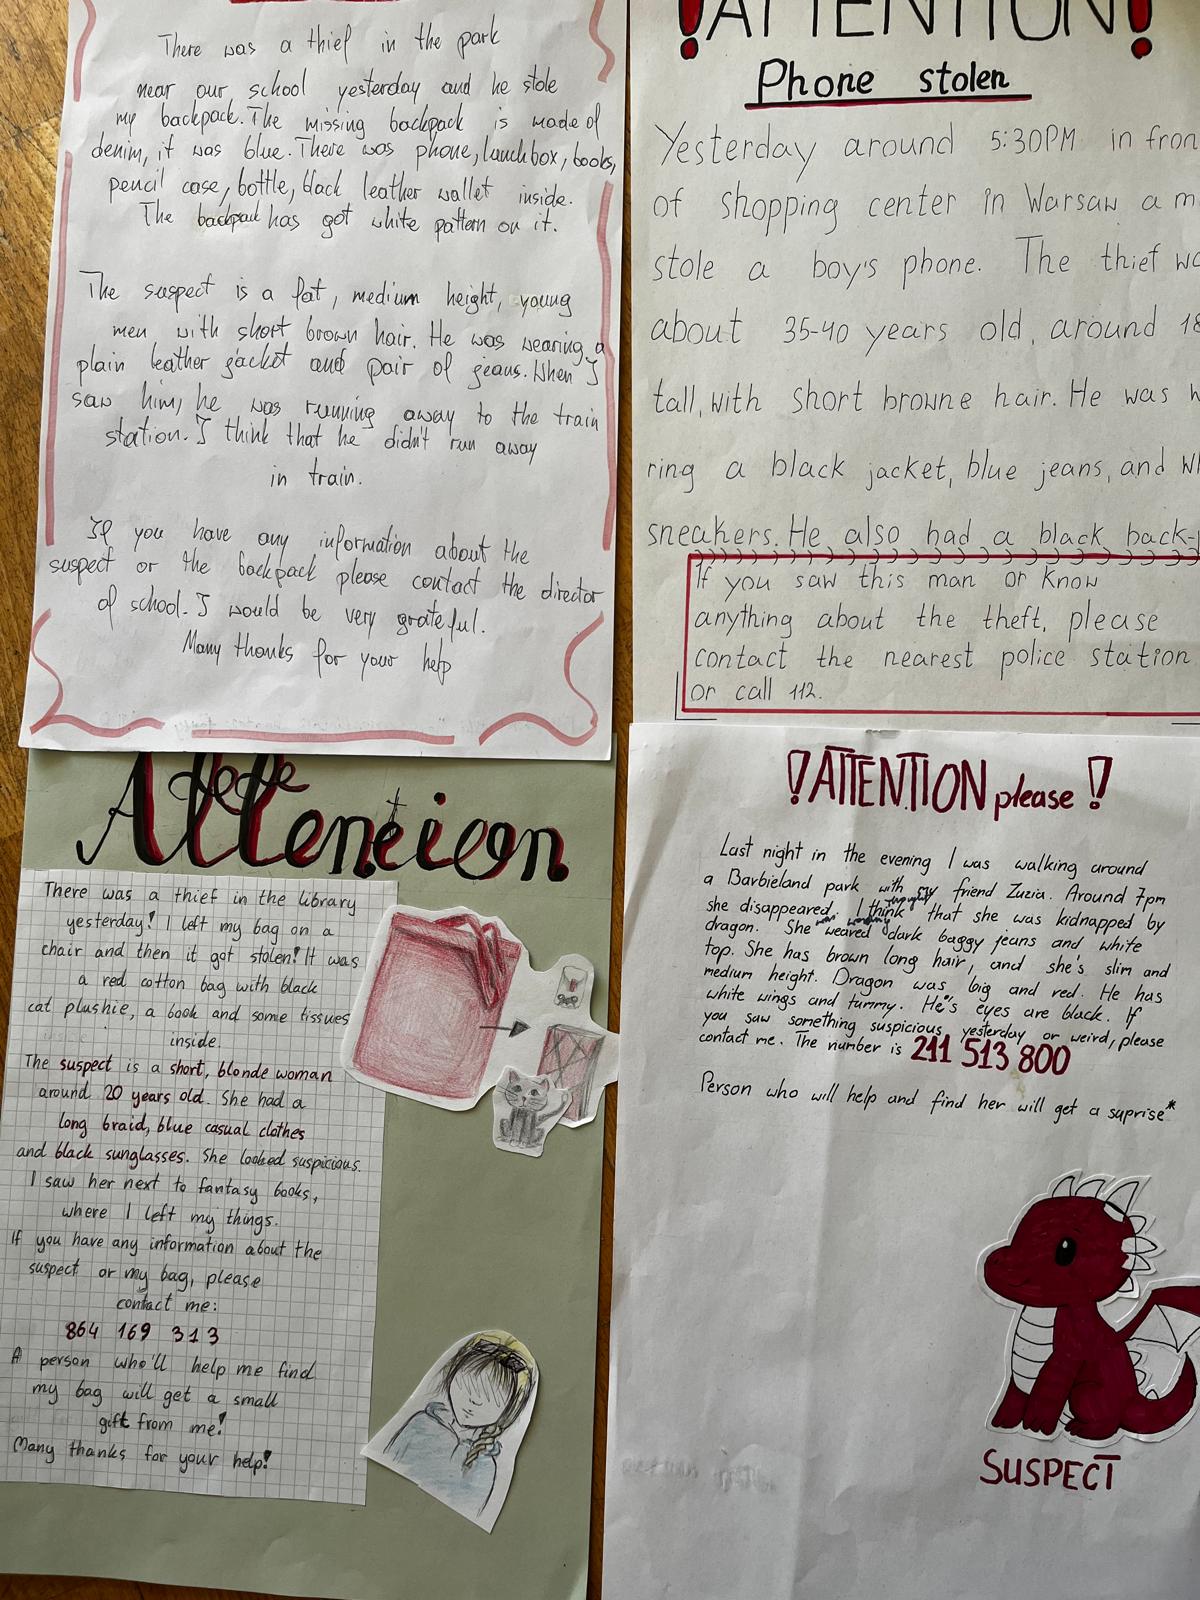 There was a thief in the park
near our school yesterday and he stole
my backpack. The missing backpack is made of
denim, it was blue. There was phone, lunchbox, books,
pencil case, bottle, black leather wallet inside.
The backpack has got white pattern on it.
The suspect is a fat, medium height, young
men with short brown hair. He was wearing a
plain leather jacket and pair of jeans. When I
saw him, he was running away to the train
station. I think that he didn't run away
in train.
If you have any information about the
suspect or the backpack please contact the director
of school. I would be very grateful.
Many thanks for your help
!ATTENTION!
Phone stolen
Yesterday around 5:30PM in fron
of shopping center in Warsaw a m
stole a boy's phone. The thief wa
about 35-40 years old, around 18
tall, with short browne hair. He was w
ring a black jacket, blue jeans, and wh
sneakers. He also had a black back-p
If you saw this man or know
anything about the theft, please
contact the nearest police station
or call 112.
Attention
There was a thief in the library
yesterday! I left my bag on a
chair and then it got stolen! It was
a red cotton bag with black
cat plushie, a book and some tissues
inside.
The suspect is a short, blonde woman
around 20 years old. She had a
long braid, blue casual clothes
and black sunglasses. She looked suspicious.
I saw her next to fantasy books,
where I left my things.
If you have any information about the
suspect or my bag, please
contact me:
864 169 313
A person who'll help me find
my bag will get a small
gift from me!
Many thanks for your help!
!ATTENTION please!
Last night in the evening I was walking around
a Barbieland park with my friend Zuzia. Around 7pm
she disappeared. I think thought that she was kidnapped by
dragon. She weared was wearing dark baggy jeans and white
top. She has brown long hair, and she's slim and
medium height. Dragon was big and red. He has
white wings and tummy. He's eyes are black. If
you saw something suspicious yesterday or weird, please
contact me. The number is 211 513 800
Person who will help and find her will get a suprise*
SUSPECT